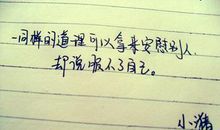 一同样的道理可以拿来安慰别人
却说服不了自己。
小雅